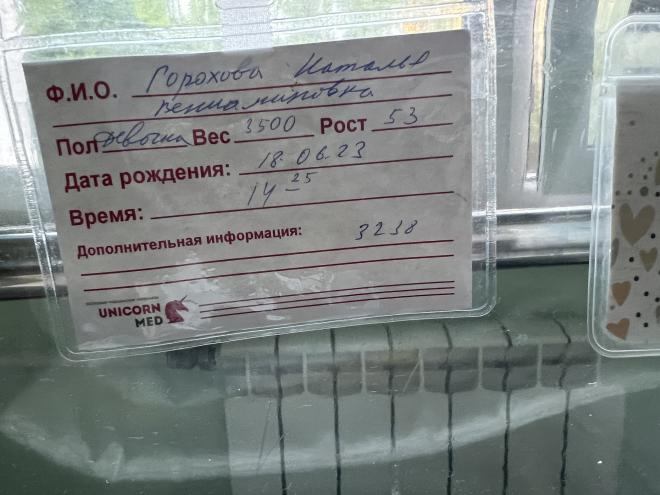 Ф.И.О. Горохова Наталья
Вениаминовна
Пол девочка Вес 3500 Рост 53
Дата рождения: 18.06.23
Время: 14-25
Дополнительная информация: 3238
UNICORN
MED